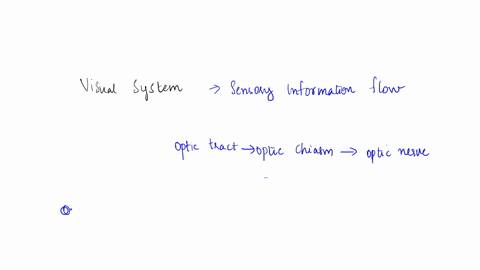 Visual System → Sensory Information flow
optic tract → optic chiasm → optic nerve